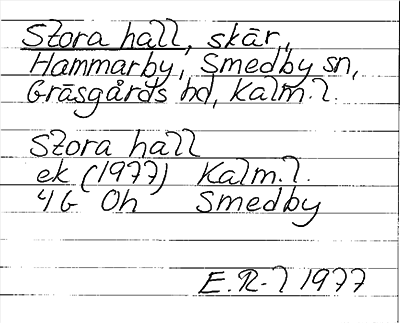 Stora hall, skär,
Hammarby, Smedby sn,
Gräsgårds hd, Kalm.l.
Stora hall
ek (1977) Kalm.l.
4G Oh Smedby
E.R-l 1977